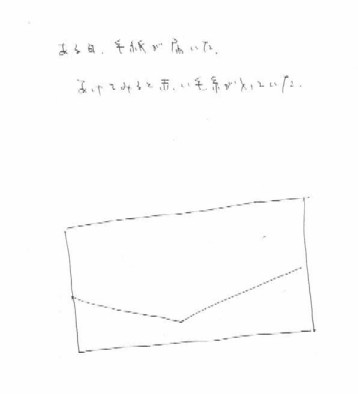 ある日、手紙が届いた。
あけてみると赤い毛糸が入っていた。